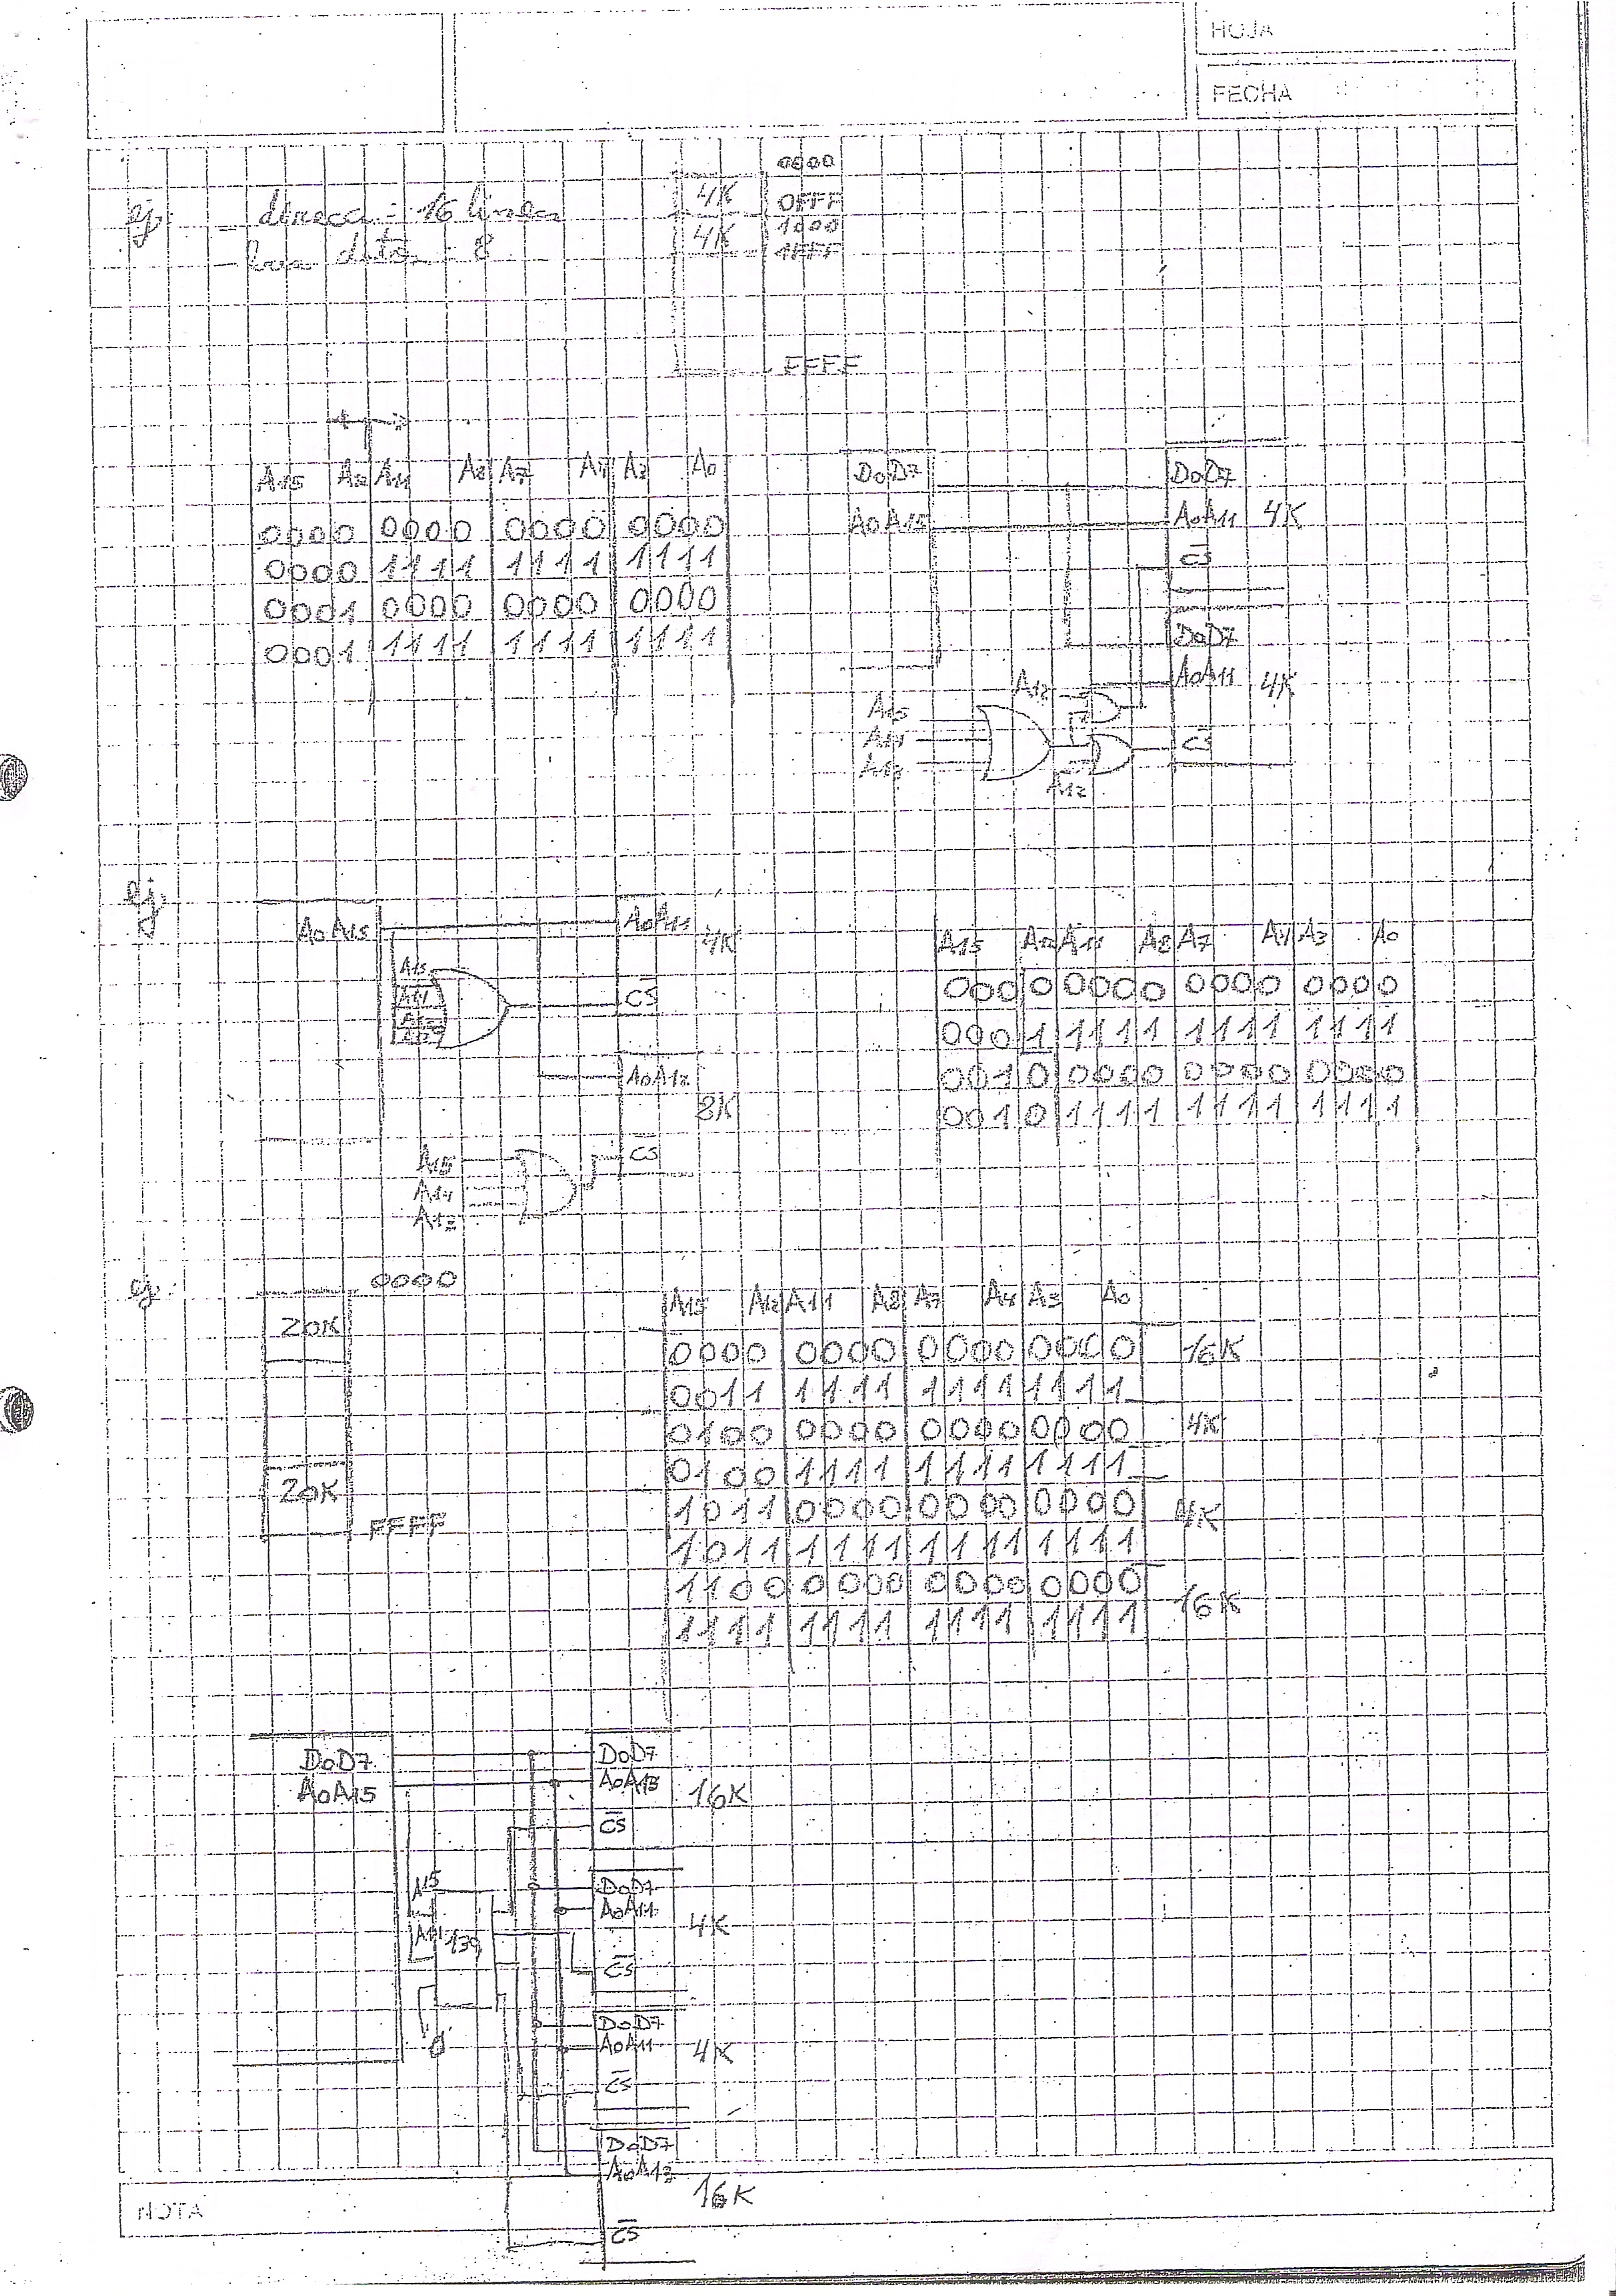 HOJA
FECHA
ej. direcci: 16 lineas
datos 8
0000
4K 0FFF
4K 1000
1FFF
FFFF
A15 A12 A11 A8 A7 A4 A3 A0
0000 0000 0000 0000
0000 1111 1111 1111
0001 0000 0000 0000
0001 1111 1111 1111
D0D7 D0D7
A0A15 A0A11 4K
CS
D0D7
A12 A0A11 4K
A15
A14 CS
A13
A12
ej.
A0A15 A0A11
4K
A15
A14 CS
A0A12
8K
A15 CS
A14
A13
A15 A12 A11 A8 A7 A4 A3 A0
0000 0000 0000 0000
0001 1111 1111 1111
0010 0000 0000 0000
0010 1111 1111 1111
ej.
0000
20K
20K
FFFF
A15 A12 A11 A8 A7 A4 A3 A0
0000 0000 0000 0000 16K
0011 1111 1111 1111
0100 0000 0000 0000 4K
0100 1111 1111 1111
1011 0000 0000 0000 4K
1011 1111 1111 1111
1100 0000 0000 0000 16K
1111 1111 1111 1111
D0D7 D0D7
A0A15 A0A13 16K
CS
A15 D0D7
A0A11 4K
139
CS
D0D7
A0A11 4K
CS
D0D7
A0A13
16K
NOTA
CS